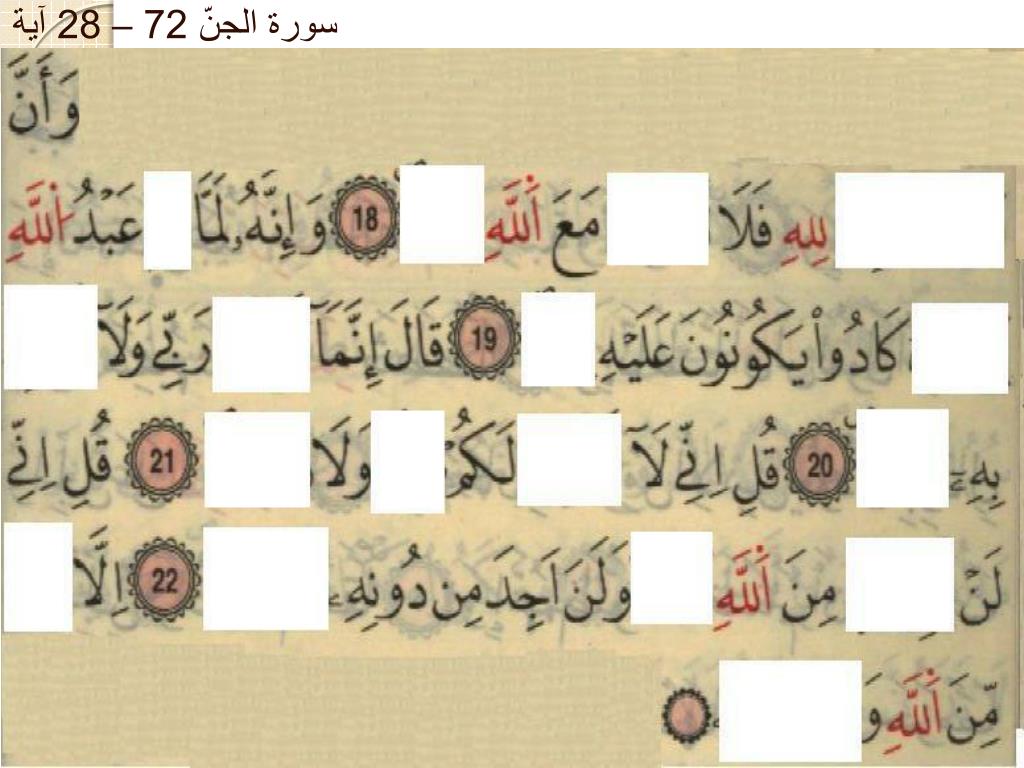 سورة الجنّ 72 – 28 آية
وَأَنَّ
لِلهِ فَلَا مَعَ اَ۬للَّهِ 18 وَإِنَّهُۥ لَمَّا عَبْدُ اُ۬للَّهِ
كَادُواْ يَكُونُونَ عَلَيْهِ 19 قَالَ إِنَّمَآ رَبِّے وَلَآ
بِهِۦٓ 20 قُلِ اِنِّے لَآ لَكُمْ وَلَا 21 قُلِ اِنِّے
لَنْ مِنَ اَ۬للَّهِ وَلَنَ اَجِدَ مِن دُونِهِۦ 22 اِلَّا
مِّنَ اَ۬للَّهِ وَ